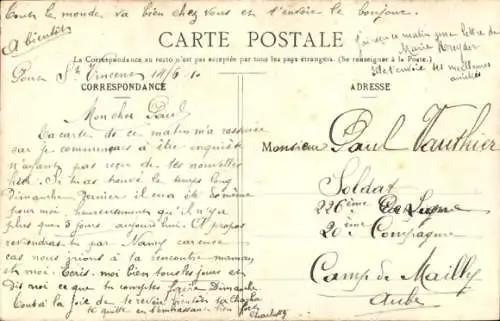 Tout le monde va bien chez vous et t'envoie le bonjour.
A bientôt
J'ai reçu ce matin une lettre de
Marie
Elle t'envoie ses meilleures
amitiés
CARTE POSTALE
La Correspondance au recto n'est pas acceptée par tous les pays étrangers. (Se renseigner à la Poste).
Pont St Vincent 14/6 10
CORRESPONDANCE
ADRESSE
Mon cher Paul
Ta carte de ce matin m'a rassurée
car je commençais à être inquiète
n'ayant pas reçu de tes nouvelles
hier. Si tu as trouvé le temps long
Dimanche dernier il en a été de même
pour moi, heureusement qu'il n'y a
plus que 5 jours aujourd'hui. A propos
reviendras-tu par Nancy car en ce
cas nous irions à ta rencontre maman
et moi. Ecris-moi bien tous les jours et
dis moi ce que tu comptes faire Dimanche
Toute à la joie de te revoir bientôt ta Charlotte
te quitte en t'embrassant bien fort
Charlotte
Monsieur Paul Vauthier
Soldat
226ème de Ligne
20è Compagnie
Camp de Mailly
Aube